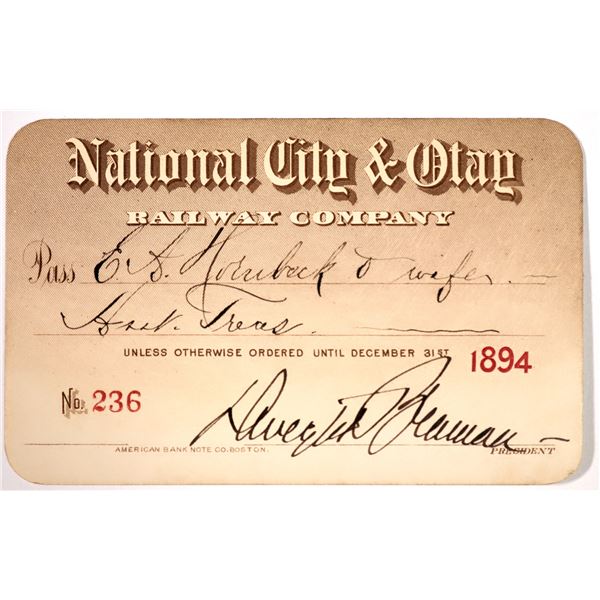 National City & Otay
RAILWAY COMPANY
Pass E. A. Hornbeck & wife
Asst. Treas.
UNLESS OTHERWISE ORDERED UNTIL DECEMBER 31ST 1894
No. 236
Dwight Braman
AMERICAN BANK NOTE CO. BOSTON.
PRESIDENT